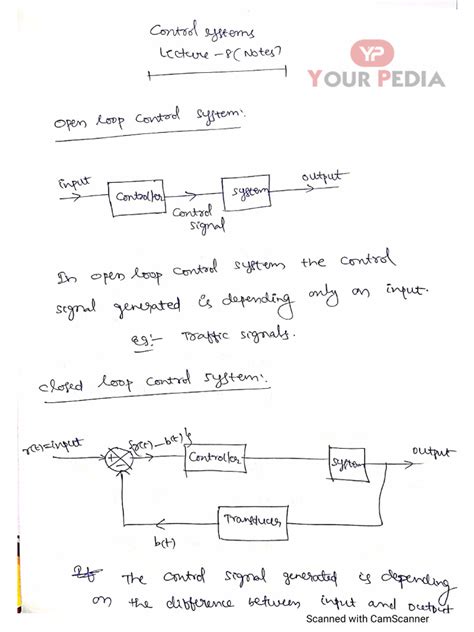 Control systems
Lecture - 8 (Notes)
YP
YOUR PEDIA
Open loop control system:
input
Controller
control
signal
System
output
In open loop control system the control
signal generated is depending only on input.
eg:- Traffic signals.
closed loop control system:
r(t)=input
+
-
{r(t)-b(t)}
Controller
System
output
Transducer
b(t)
The control signal generated is depending
on the difference between input and output
Scanned with CamScanner